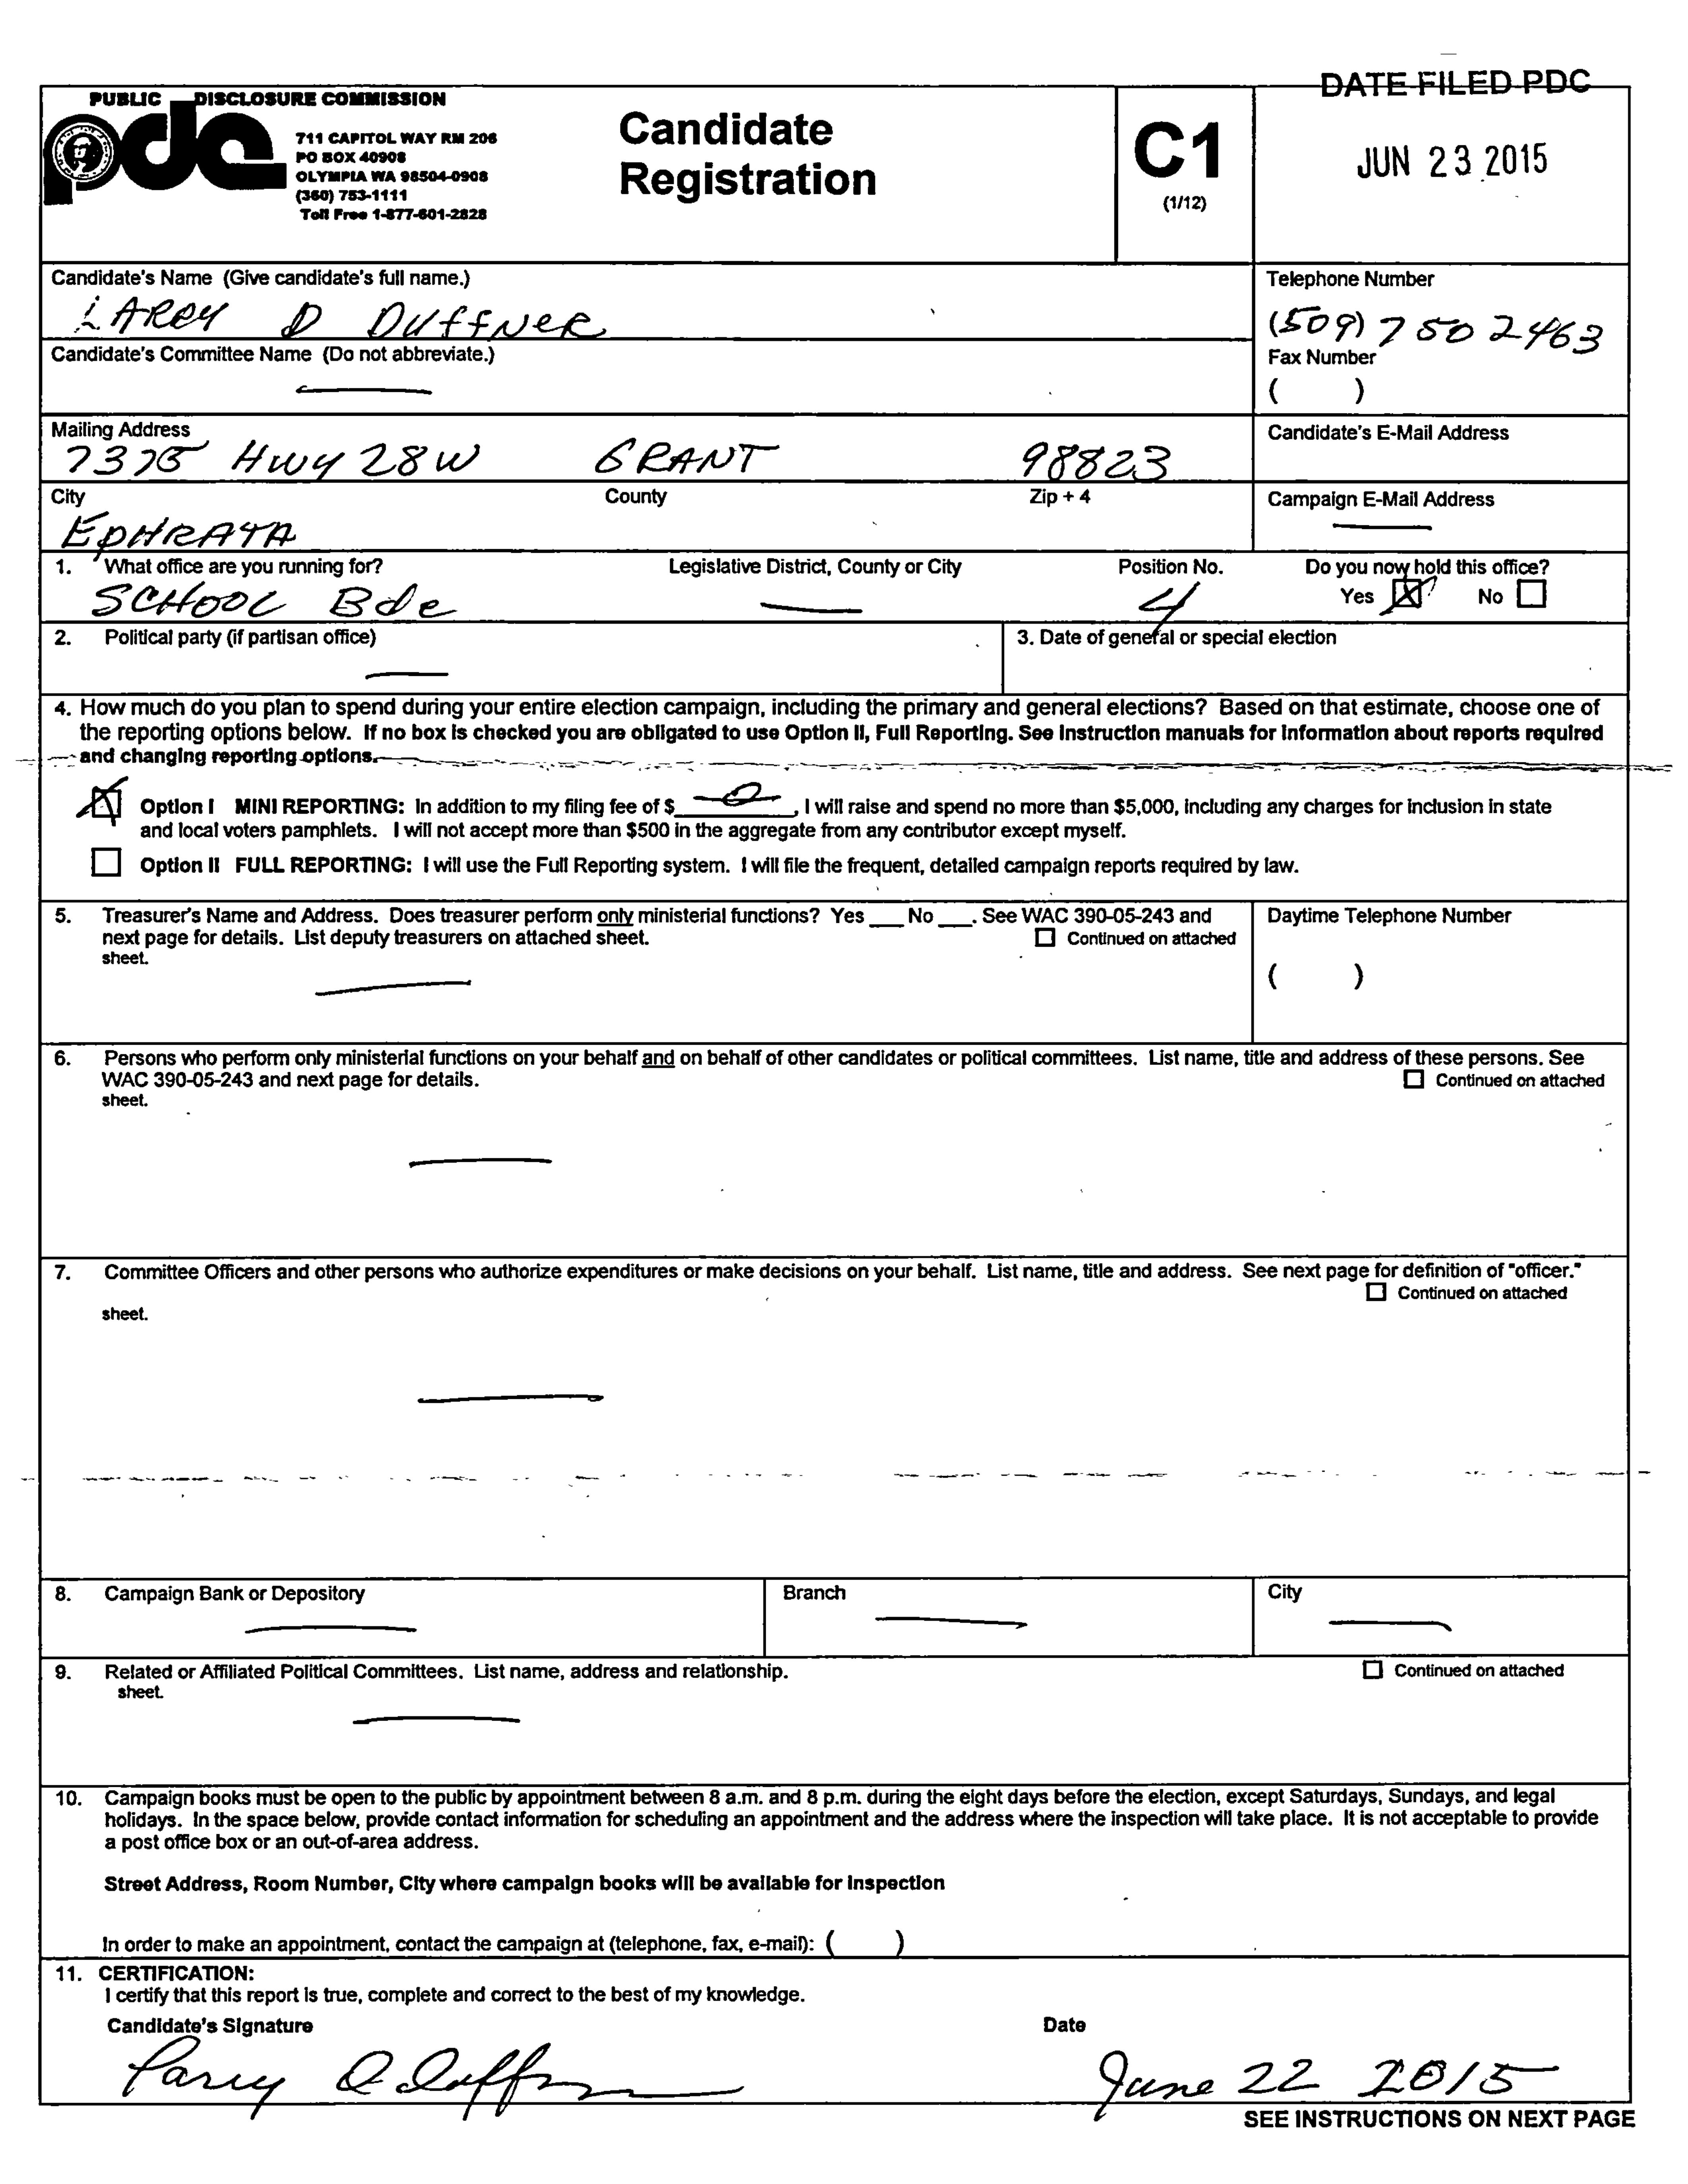 DATE FILED PDC
PUBLIC DISCLOSURE COMMISSION
pdc
711 CAPITOL WAY RM 206
PO BOX 40908
OLYMPIA WA 98504-0908
(360) 753-1111
Toll Free 1-877-601-2828
Candidate
Registration
C1
(1/12)
JUN 23 2015
Candidate's Name (Give candidate's full name.)
LARRY D DUFFNER
Telephone Number
(509) 750 2463
Candidate's Committee Name (Do not abbreviate.)
Fax Number
( )
Mailing Address
7375 HWY 28 W GRANT 98823
Candidate's E-Mail Address
City County Zip + 4
EPHRATA
Campaign E-Mail Address
1. What office are you running for? Legislative District, County or City Position No. Do you now hold this office?
SCHOOL Bde 4 Yes X No
2. Political party (if partisan office)
3. Date of general or special election
4. How much do you plan to spend during your entire election campaign, including the primary and general elections? Based on that estimate, choose one of
the reporting options below. If no box is checked you are obligated to use Option II, Full Reporting. See instruction manuals for information about reports required
and changing reporting options.
X Option I MINI REPORTING: In addition to my filing fee of $ 0 , I will raise and spend no more than $5,000, including any charges for inclusion in state
and local voters pamphlets. I will not accept more than $500 in the aggregate from any contributor except myself.
Option II FULL REPORTING: I will use the Full Reporting system. I will file the frequent, detailed campaign reports required by law.
5. Treasurer's Name and Address. Does treasurer perform only ministerial functions? Yes ___ No ___. See WAC 390-05-243 and
next page for details. List deputy treasurers on attached sheet. Continued on attached
sheet.
Daytime Telephone Number
( )
6. Persons who perform only ministerial functions on your behalf and on behalf of other candidates or political committees. List name, title and address of these persons. See
WAC 390-05-243 and next page for details. Continued on attached
sheet.
7. Committee Officers and other persons who authorize expenditures or make decisions on your behalf. List name, title and address. See next page for definition of "officer."
Continued on attached
sheet.
8. Campaign Bank or Depository Branch City
9. Related or Affiliated Political Committees. List name, address and relationship. Continued on attached
sheet.
10. Campaign books must be open to the public by appointment between 8 a.m. and 8 p.m. during the eight days before the election, except Saturdays, Sundays, and legal
holidays. In the space below, provide contact information for scheduling an appointment and the address where the inspection will take place. It is not acceptable to provide
a post office box or an out-of-area address.
Street Address, Room Number, City where campaign books will be available for inspection
In order to make an appointment, contact the campaign at (telephone, fax, e-mail): ( )
11. CERTIFICATION:
I certify that this report is true, complete and correct to the best of my knowledge.
Candidate's Signature Date
Larry D Duffner June 22 2015
SEE INSTRUCTIONS ON NEXT PAGE